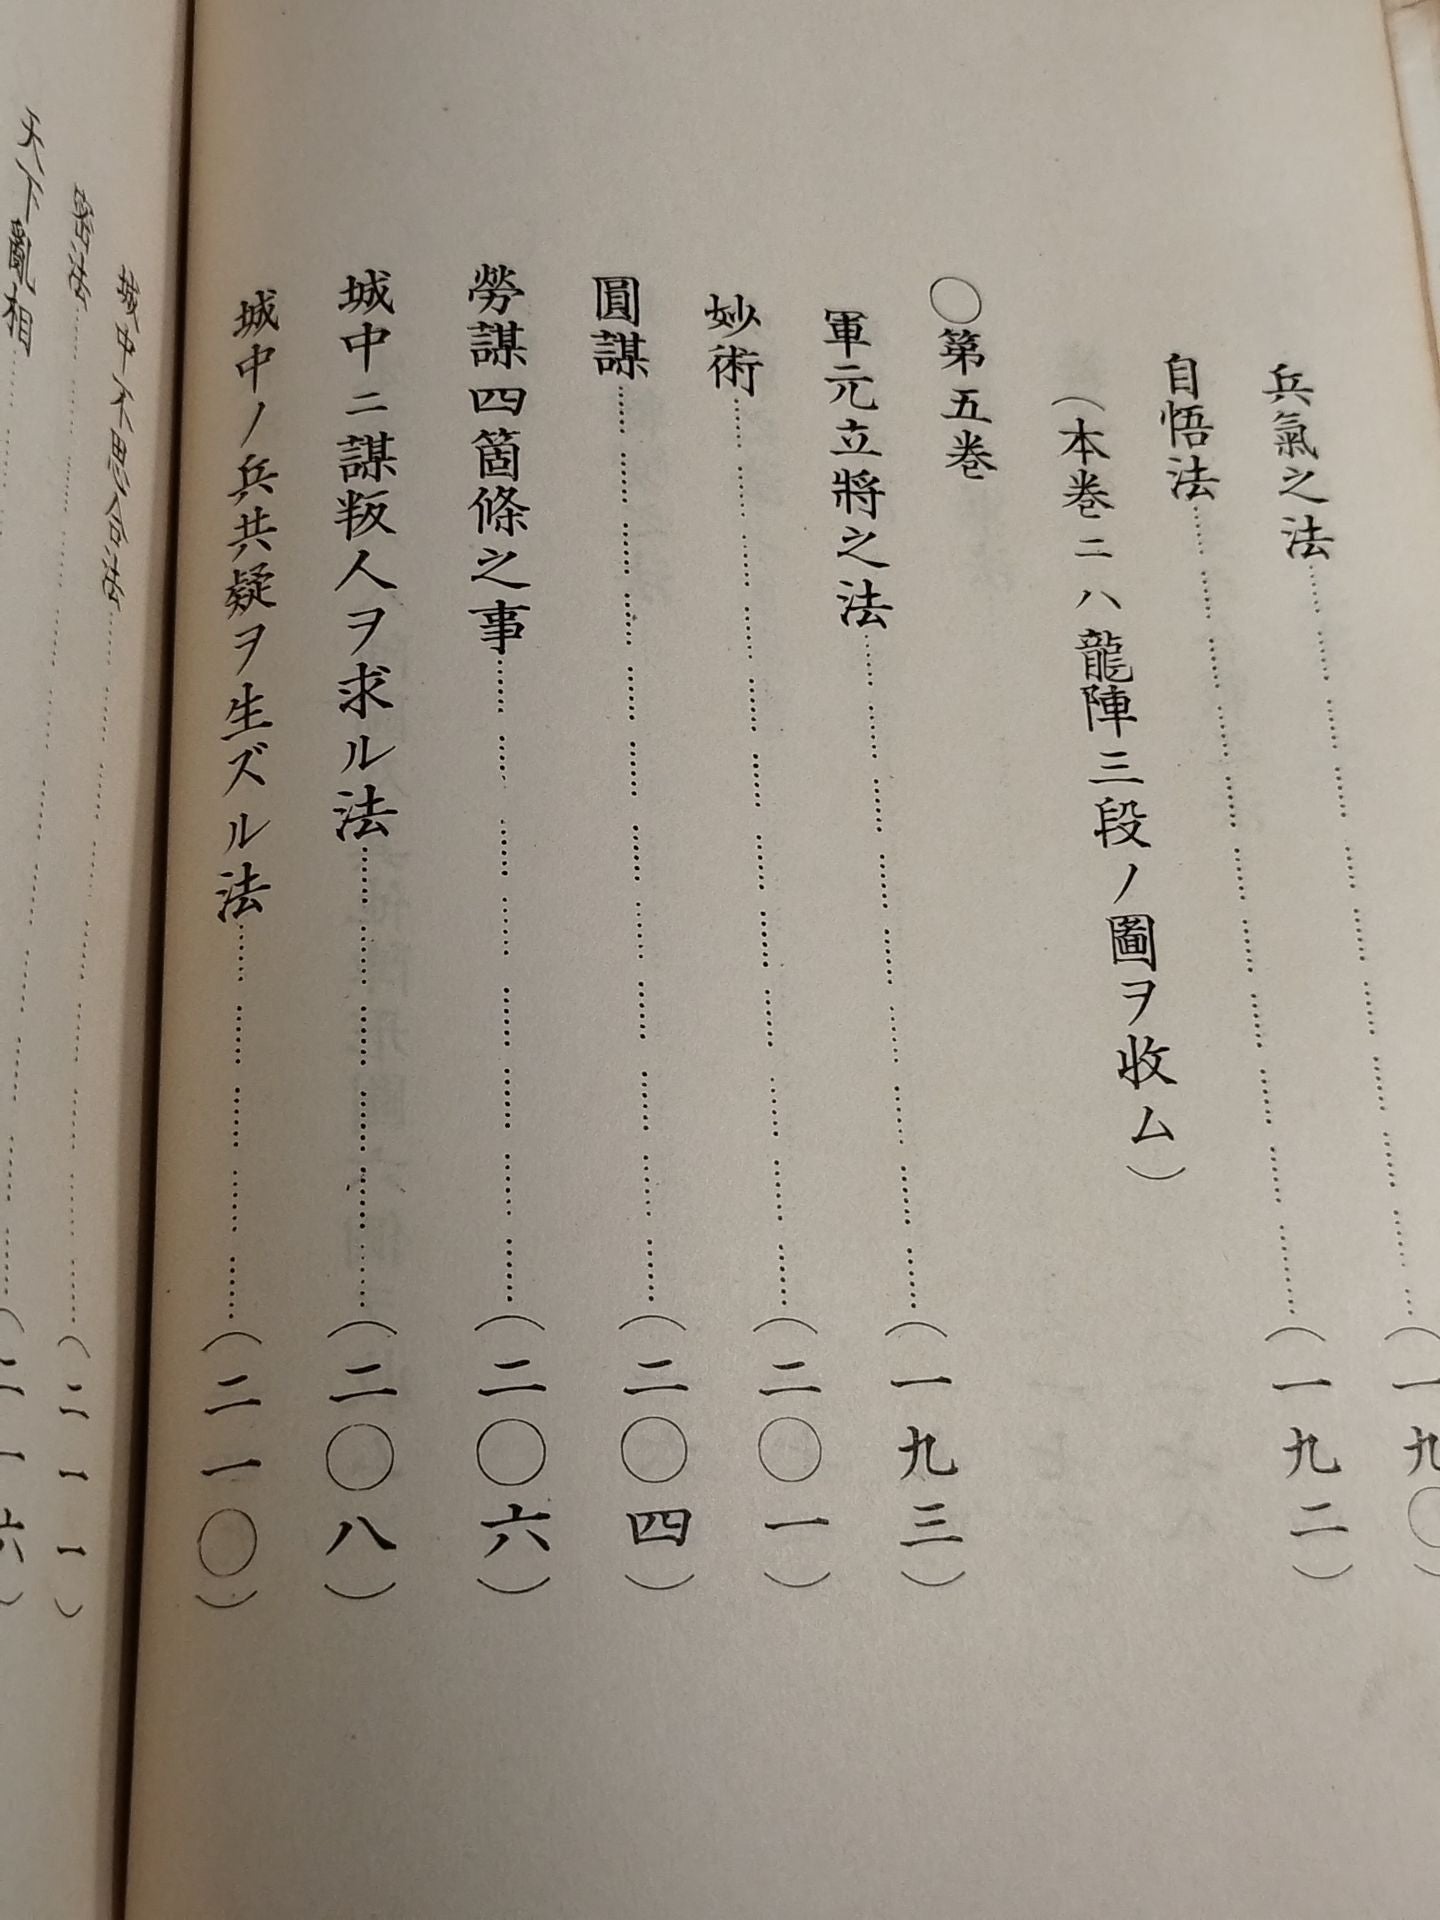 兵氣之法………………………（一九〇）
自悟法………………………（一九二）
（本巻ニハ龍陣三段ノ圖ヲ收ム）
〇第五巻
軍元立將之法………………………（一九三）
妙術………………………（二〇一）
圓謀………………………（二〇四）
勞謀四箇條之事………………………（二〇六）
城中ニ謀叛人ヲ求ル法………………………（二〇八）
城中ノ兵共疑ヲ生ズル法………………………（二一〇）
城中不思合法………………………（二一一）
法………………………
天下亂相………………………（二一六）